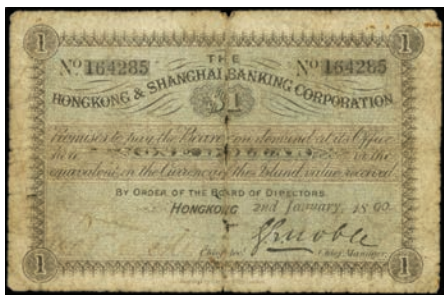 1 THE 1
No 164285 No 164285
HONGKONG & SHANGHAI BANKING CORPORATION
$1
Promises to pay the Bearer on demand at its Office
here ONE DOLLAR or the
equivalent in the Currency of the Island, value received.
BY ORDER OF THE BOARD OF DIRECTORS.
HONGKONG 2nd January, 1890
Chief Manager.
1 1